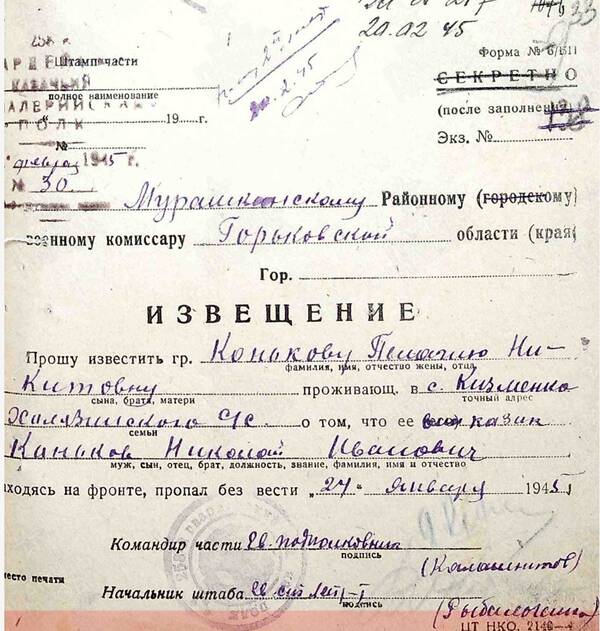 20.02.45
Штамп части
Форма № 6/1511
КАЗАЧИЙ
СЕКРЕТНО
полное наименование
(после заполнения)
ПОЛК
19 г.
20.2.45
Экз. №
№
февраля 1945 г.
№ 30
Мурашкинскому Районному (городскому)
военному комиссару Горьковской области (края)
Гор.
ИЗВЕЩЕНИЕ
Прошу известить гр. Конькову Пелагию Ни-
фамилия, имя, отчество жены, отца
китовну проживающ. в с. Кизменко
сына, брата, матери
точный адрес
Халязинского С/С о том, что ее казак
семьи
Коньков Николай Иванович
муж, сын, отец, брат, должность, звание, фамилия, имя и отчество
находясь на фронте, пропал без вести "27" января 1945
Командир части Гв. подполковник
подпись
(Калашнитов)
место печати
Начальник штаба Гв. ст. Лейт-т
подпись
ЦТ НКО.